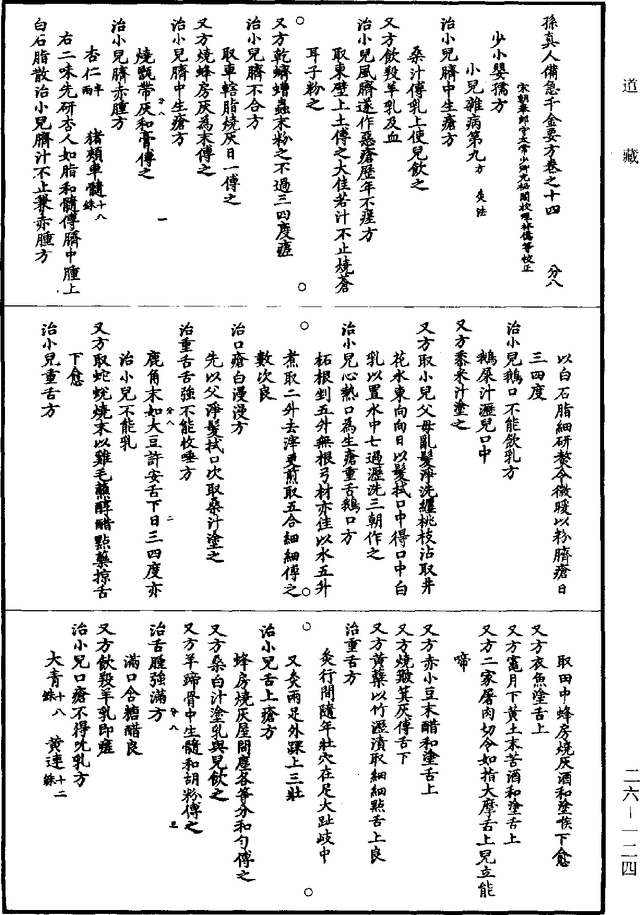 道藏
孫真人備急千金要方卷之十四 分八
宋朝奉郎守太常少卿充祕閣校理林億等校正
少小嬰孺方
小兒雜病第九方 灸法
治小兒臍中生瘡方
桑汁傅乳上使兒飲之
又方飲羖羊乳及血
治小兒風臍遂作惡瘡歷年不瘥方
取東壁上土傅之大佳若汁不止燒蒼
耳子粉之
又方乾蠐螬蟲末粉之不過三四度瘥
治小兒臍不合方
取車轄脂燒灰日一傅之
又方燒蜂房灰為末傅之
治小兒臍中生瘡方
燒甑帶灰和膏傅之
治小兒臍赤腫方
杏仁半兩 猪頰車髓十八銖
右二味先研杏人如脂和髓傅臍中腫上
白石脂散治小兒臍汁不止兼赤腫方
以白石脂細研熬令微暖以粉臍瘡日
三四度
治小兒鵝口不能飲乳方
鵝屎汁瀝兒口中
又方黍米汁塗之
又方取小兒父母亂髮淨洗纏桃枝沾取井
花水東向向日以髮拭口中得口中白
乳以置水中七過瀝洗三朝作之
治小兒心熱口為生瘡重舌鵝口方
柘根剉五升無根弓材亦佳以水五升
煮取二升去滓更煎取五合細細傅之
數次良
治口瘡白漫漫方
先以父淨髮拭口次取桑汁塗之
治重舌舌強不能收唾方
鹿角末如大豆許安舌下日三四度亦
治小兒不能乳
又方取蛇蛻燒末以雞毛蘸醇醋點藥掠舌
下愈
治小兒重舌方
取田中蜂房燒灰酒和塗喉下愈
又方衣魚塗舌上
又方竈月下黃土末苦酒和塗舌上
又方三家屠肉切令如指大摩舌上兒立能
啼
又方赤小豆末醋和塗舌上
又方燒簸箕灰傅舌下
又方黃蘗以竹瀝漬取細細點舌上良
治重舌方
灸行間隨年壯穴在足大趾歧中
又灸兩足外踝上三壯
治小兒舌上瘡方
蜂房燒灰屋間塵各等分和勻傅之
又方桑白汁塗乳與兒飲之
又方羊蹄骨中生髓和胡粉傅之
治舌腫強滿方
滿口含糖醋良
又方飲羖羊乳即瘥
治小兒口瘡不得吮乳方
大青十八銖 黃連十二銖
二六—一二四